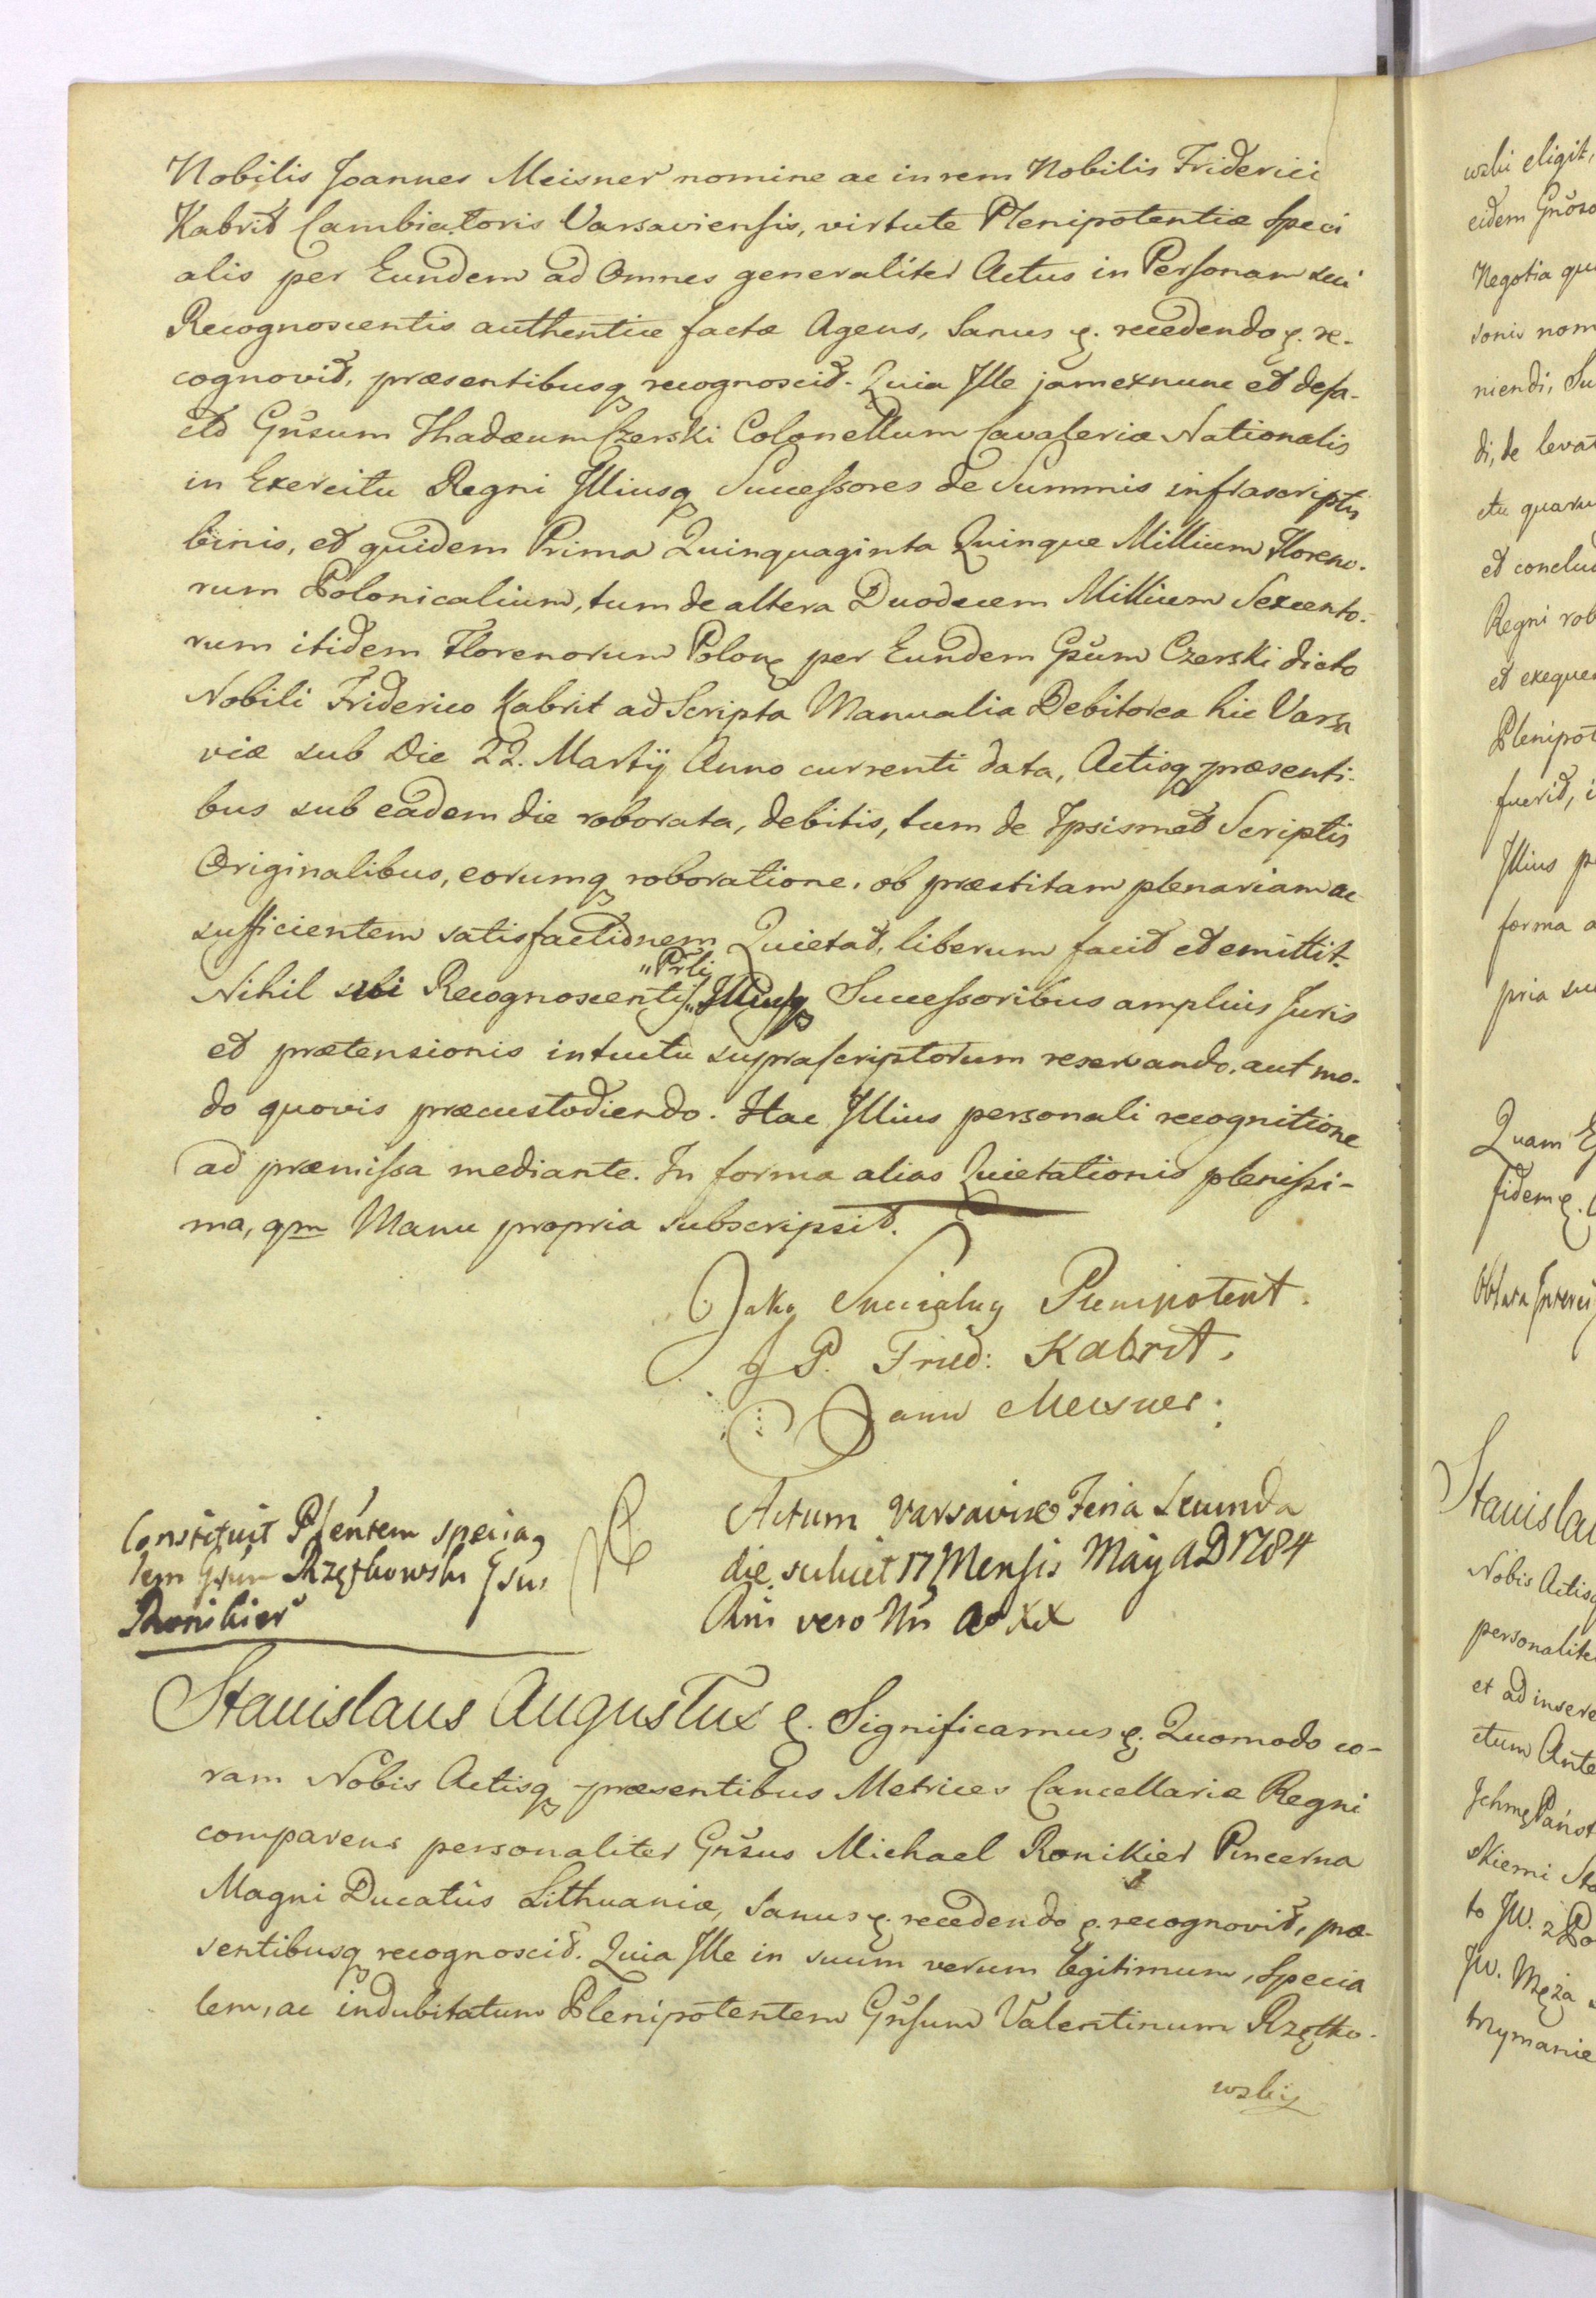 Nobilis Joannes Meisner nomine ac in rem Nobilis Friderici
Kabrit Cambiatoris Varsaviensis, virtute Plenipotentiæ Speci
alis per Eundem ad Omnes generaliter Actus in Personam sui
Recognoscentis authentice factæ Agens, Sanus &. recedendo &. re-
cognovit, præsentibusq recognoscit. Quia Ille jam exnunc et defa-
cto Gnsum Thadæum Czerski Colonellum Cavaleriæ Nationalis
in Exercitu Regni Illiusq Successores de Summis infrascriptis
binis, et quidem Prima Quinquaginta Quinque Millium Floreno-
rum Polonicalium, tum de altera Duodecem Millium Sexcento-
rum itidem Florenorum Polon per Eundem Gsum Czerski dicto
Nobili Friderico Kabrit ad Scripta Manualia Debitorea hic Varsa
viæ sub Die 22. Martij Anno currenti data, Actisq præsenti-
bus sub eadem die roborata, debitis, tum de Ipsismet Scriptis
Originalibus, eorumq roboratione, ob præstitam plenariam ac
sufficientem satisfactionem Quietat, liberum facit et emittit.
Nihil sibi Recognoscenti „Prli Illiusq Successoribus amplius Juris
et prætensionis intuitu suprascriptorum reservando, aut mo-
do quovis præcustodiendo. Hac Illius personali recognitione
ad præmissa mediante. In forma alias Quietationis plenissi-
ma, qm Manu propria subscripsit.
Jako Specialny Plenipotent.
J P. Fried: Kabrit,
Jann Meisner.
Constituit Plentem specia
lem Gsum Rzętkowski Gsus
Ronikier
Actum Varsaviæ Feria Secunda
die scilicet 17 Mensis Maij AD 1784
Rni vero Nri Ao XX
Stanislaus Augustus &. Significamus &. Quomodo co-
ram Nobis Actisq præsentibus Metrices Cancellariæ Regni
comparens personaliter Gnsus Michael Ronikier Pincerna
Magni Ducatus Lithuaniæ, Sanus &. recedendo &. recognovit, præ-
sentibusq recognoscit. Quia Ille in suum verum legitimum, Specia
lem, ac indubitatum Plenipotentem Gnsum Valentinum Rzętko-
wski
wski eligit,
eidem Gnoso
Negotia qu
sonis nom
niendi, Su
di, de levat
etu quaru
et conclud
Regni rob
et exequen
Plenipot
fuerit, i
Illius p
forma a
pria su
Quam
fidem &.
Oblata
Stanisla
Nobis Actisq
personalite
et ad insere
ctum Ante
Ichmę Państ
skiemi Sta
to JW. z Po
JW. Męża
trzymanie